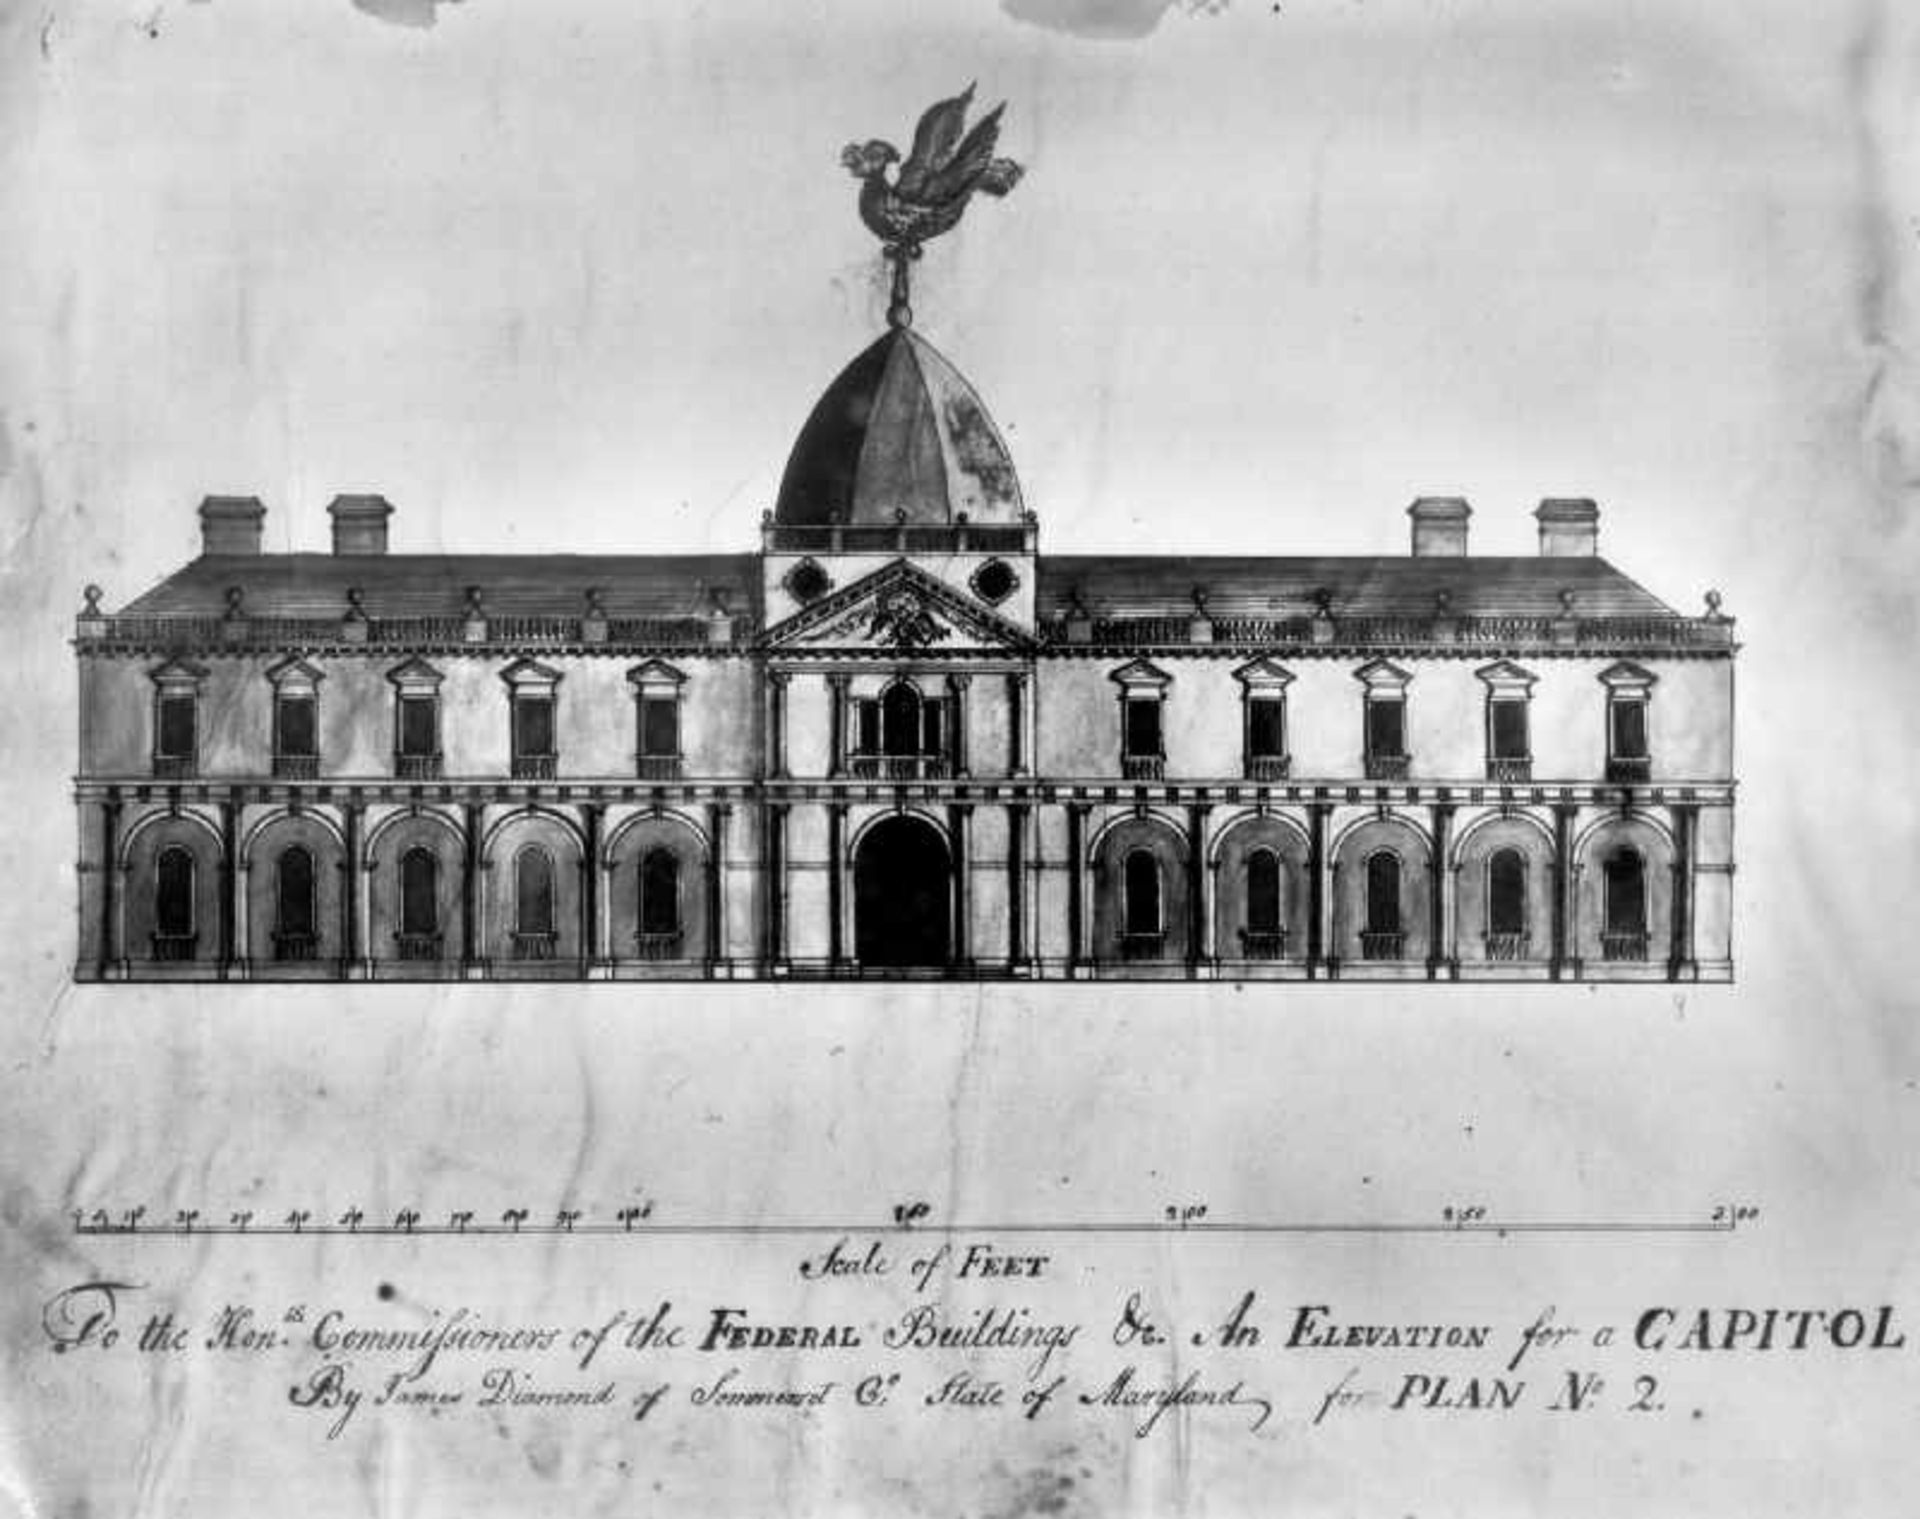 100 200
Scale of FEET
To the Hon.ble Commissioners of the FEDERAL Buildings &c. An ELEVATION for a CAPITOL
By James Diamond of Sommerset Co. State of Maryland, for PLAN No. 2.